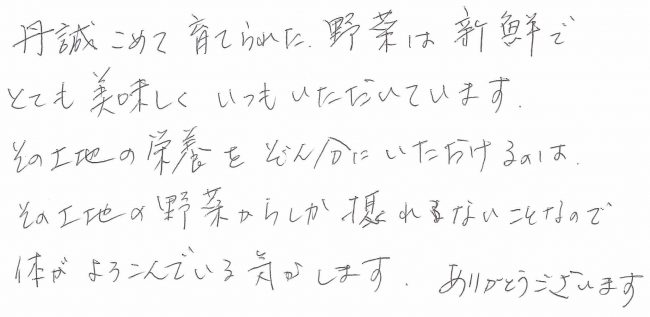 丹誠こめて育てられた、野菜は新鮮で
とても美味しくいつもいただいています。
その土地の栄養をぞん分にいただけるのは、
その土地の野菜からしか摂れないことなので
体がよろこんでいる気がします。ありがとうございます